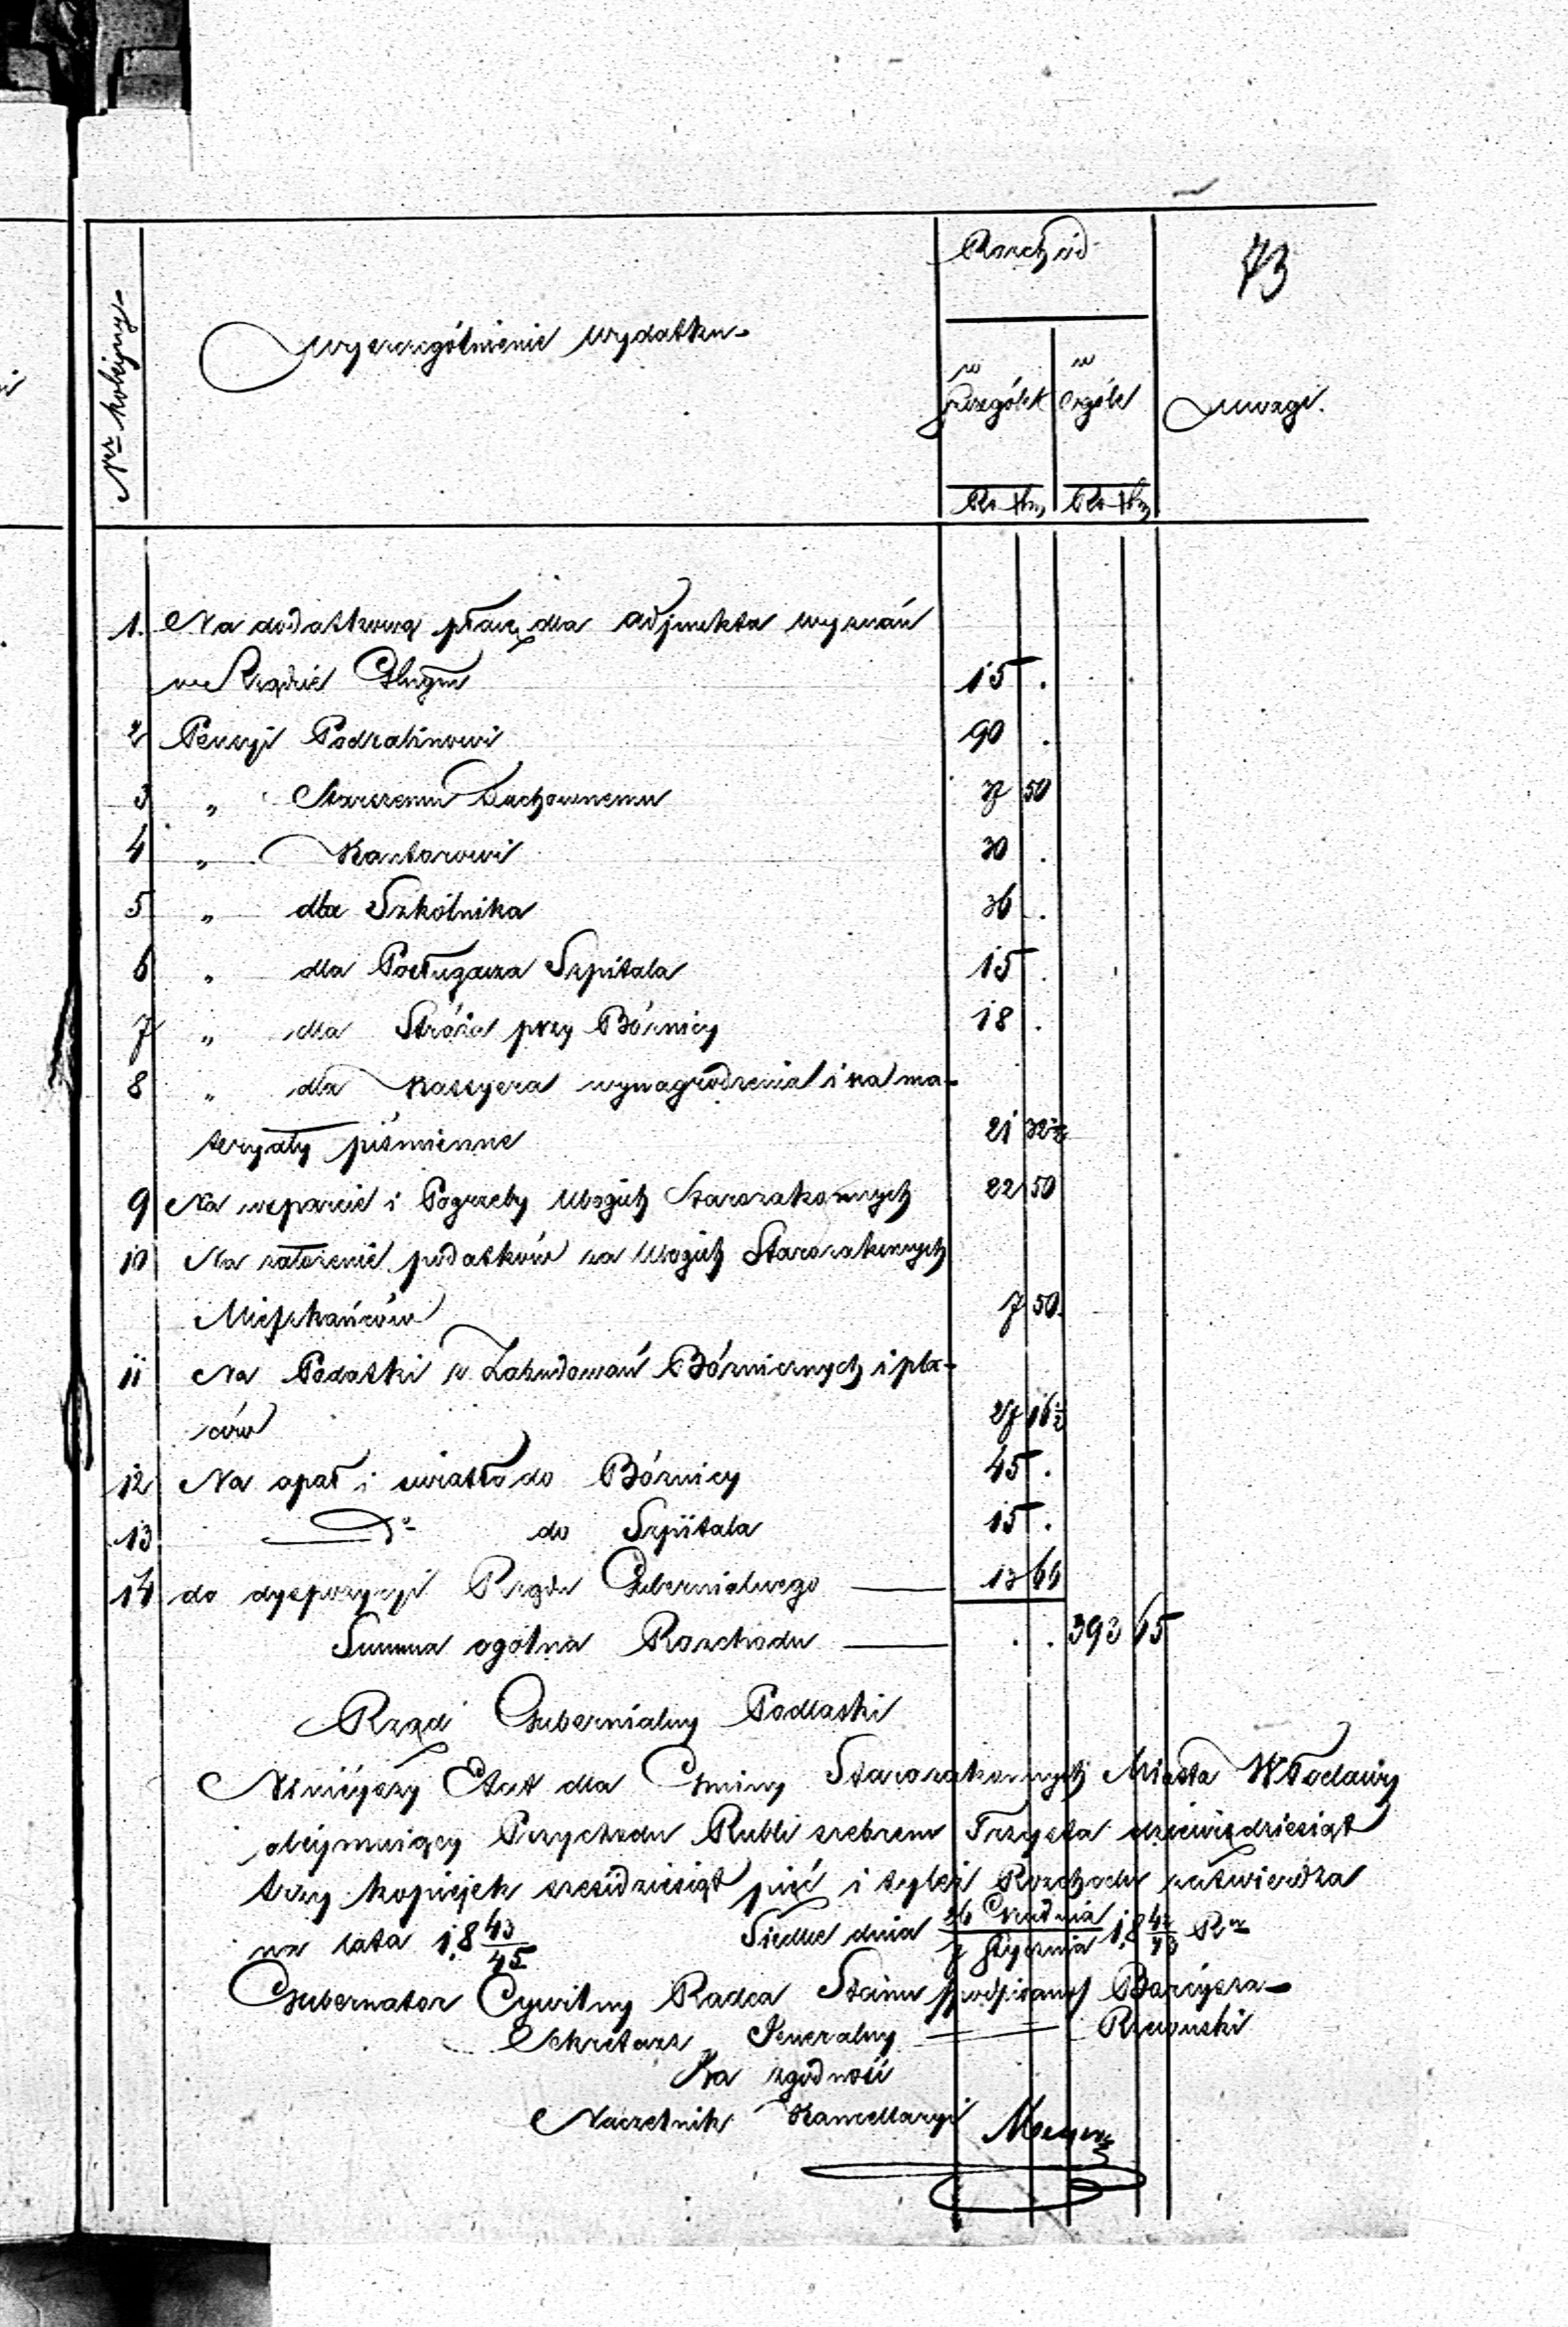 73
Nr kolejny
Wyszczególnienie wydatku
Rozchód
w szczególe
w ogóle
Uwagi.
Rs Kop Rs Kop
1. Na dodatkową płacę dla Adjunkta wyznań
w Rządzie Gbnym 15 .
2 Pensyi Podrabinowi 90 .
3 „ Starszemu Duchownemu 37 50
4 „ Kantorowi 30 .
5 „ dla Szkólnika 36 .
6 „ dla Posługacza Szpitala 15 .
7 „ dla Stróża przy Bóżnicy 18 .
8 „ dla Kassyera wynagrodzenia i na ma-
teryały piśmienne 21 32½
9 Na wsparcie i Pogrzeby Ubogich Starozakonnych 22 50
10 Na założenie podatków za Ubogich Starozakonnych
Mieszkańców 7 50
11 Na Podatki z Zabudowań Bóżnicznych i pla-
ców 27 16½
12 Na opał i swiatło do Bóżnicy 45 .
13 Do do Szpitala 15 .
14 do dyspozycyi Rządu Gubernialnego 13 66
Summa ogólna Rozchodu . . 393 65
Rząd Gubernialny Podlaski
Ninieyszy Etat dla Gminy Starozakonnych Miasta Włodawy
obeymuiący Przychodu Rubli srebrem Trzysta dziewiędziesiąt
trzy kopiejek sześćdziesiąt pięć i tyleż Rozchodu zatwierdza
na lata 18 43/45 Siedlce dnia 26 Grudnia/7 Stycznia 18 42/43 Rr
Gubernator Cywilny Radca Stanu /podpisano/
Sekretarz Jeneralny Rzewuski
Za zgodność
Naczelnik Kancellaryi